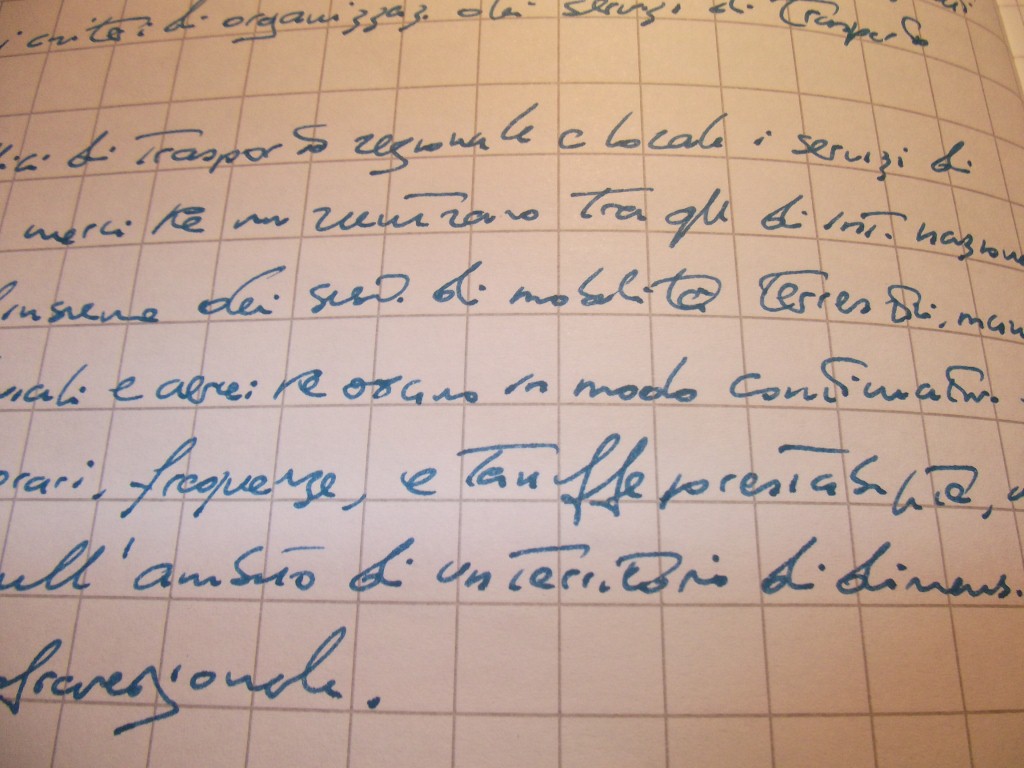 i criteri di organizzaz. dei servizi di trasporto
di trasporto regionale e locale i servizi di
merci tra gli di int. naziona
l'insieme dei di mobilità terrestri, mari
e aerei in modo continuativ.
orari, frequenze, e tariffe prestabilite,
ull'ambito di un territorio di dimens.
nfraregionale.